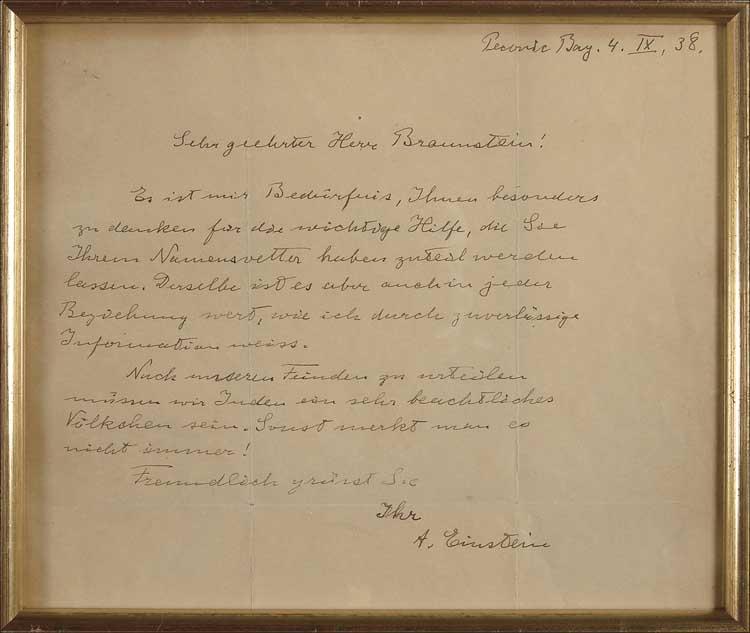 Peconic Bay. 4. IX, 38.
Sehr geehrter Herr Braunstein!
Es ist mir Bedürfnis, Ihnen besonders
zu danken für die wichtige Hilfe, die Sie
Ihrem Namensvetter haben zuteil werden
lassen. Derselbe ist es aber auch in jeder
Beziehung wert, wie ich durch zuverlässige
Information weiss.
Nach unseren Feinden zu urteilen
müssen wir Juden ein sehr beachtliches
Völkchen sein. Sonst merkt man es
nicht immer!
Freundlich grüsst Sie
Ihr
A. Einstein